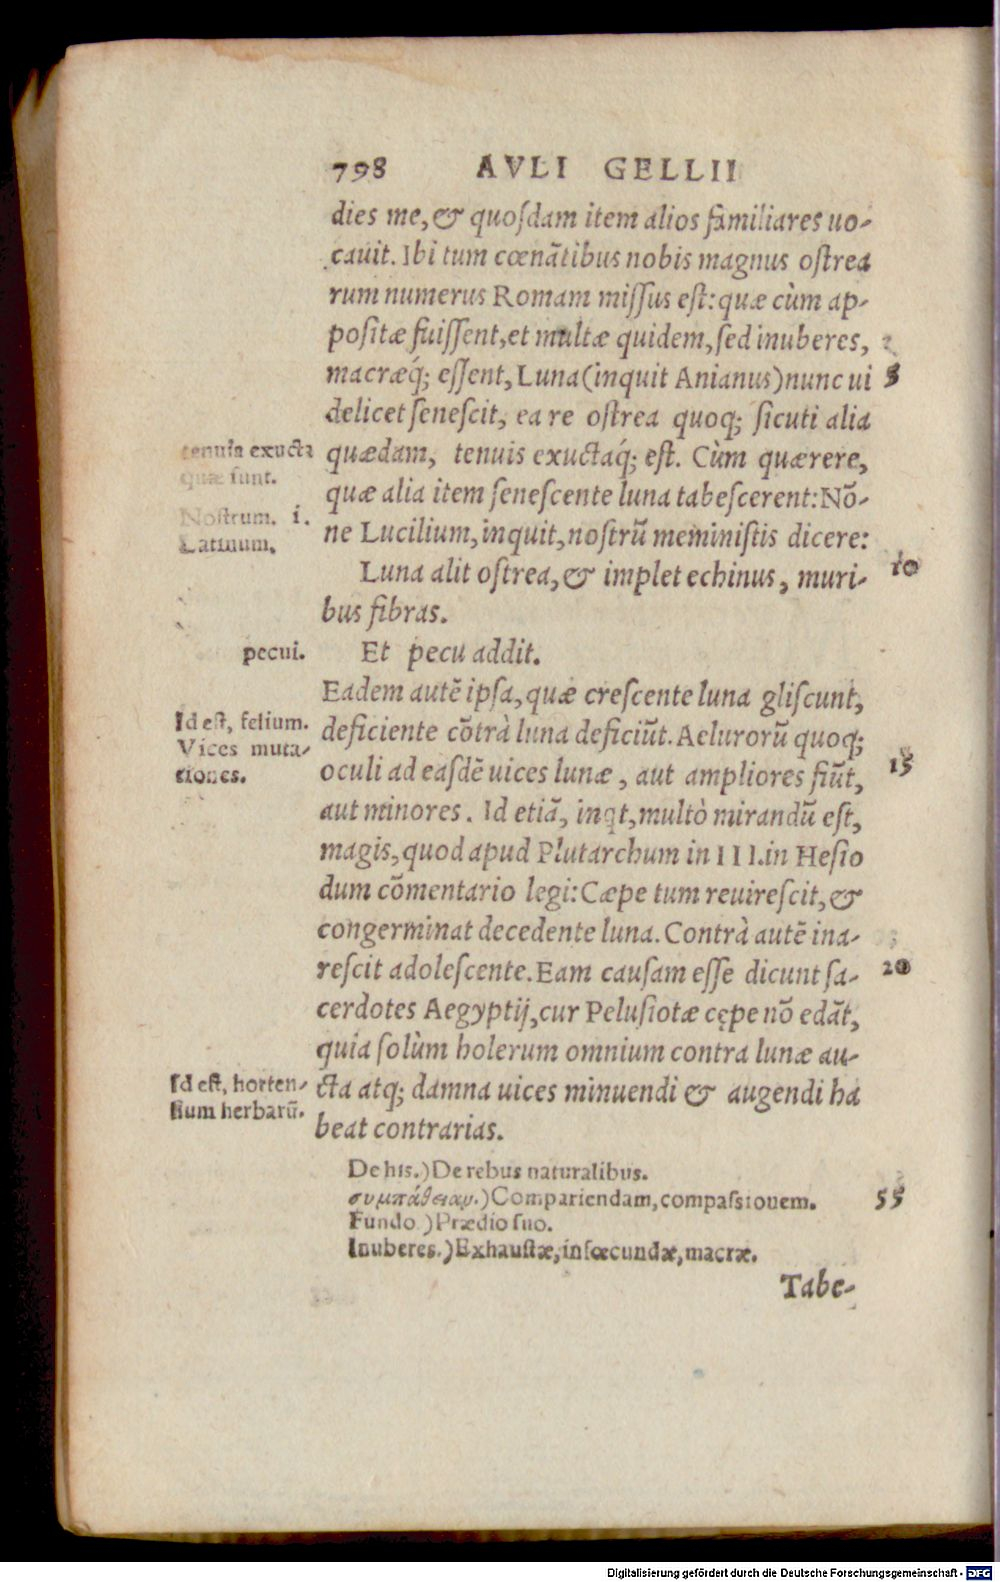 798 AVLI GELLII
dies me, & quosdam item alios familiares uo-
cauit. Ibi tum cœnãtibus nobis magnus ostrea
rum numerus Romam missus est: quæ cùm ap-
positæ fuissent, et multæ quidem, sed inuberes,
macræq́; essent, Luna (inquit Anianus) nunc ui 5
delicet senescit, ea re ostrea quoq; sicuti alia
tenuia exucta
quædam, tenuis exuctaq́; est. Cùm quærere,
quæ sunt.
quæ alia item senescente luna tabescerent: Nõ-
Nostrum. i.
ne Lucilium, inquit, nostrũ meministis dicere:
Latinum.
Luna alit ostrea, & implet echinus, muri- 10
bus fibras.
pecui.
Et pecu addit.
Eadem autẽ ipsa, quæ crescente luna gliscunt,
Id est, felium.
deficiente cõtrà luna deficiũt. Aelurorũ quoq;
Vices muta-
oculi ad easdẽ uices lunæ, aut ampliores fiũt, 15
tiones.
aut minores. Id etiã, inqt, multò mirandũ est,
magis, quod apud Plutarchum in III. in Hesio
dum cõmentario legi: Cæpe tum reuirescit, &
congerminat decedente luna. Contrà autẽ ina-
rescit adolescente. Eam causam esse dicunt sa- 20
cerdotes Aegyptij, cur Pelusiotæ cępe nõ edãt,
quia solùm holerum omnium contra lunæ au-
Id est, horten-
cta atq; damna uices minuendi & augendi ha
sium herbarũ.
beat contrarias.
De his.) De rebus naturalibus.
συμπάθειαν.) Compariendam, compassionem. 55
Fundo.) Prædio suo.
Inuberes.) Exhaustæ, infœcundæ, macræ.
Tabe-
Digitalisierung gefördert durch die Deutsche Forschungsgemeinschaft - DFG